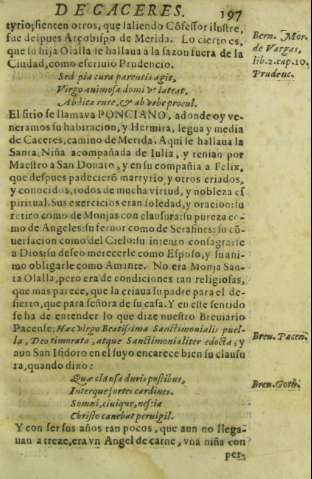 DE CACERES.
197
tyrio; sienten otros, que saliendo Cõfessor ilustre,
fue despues Arçobispo de Merida. Lo cierto es,
que su hija Olalla se hallaua a la sazon fuera de la
Ciudad, como escriuiò Prudencio.
Sed pia cura parentis agit,
Virgo animosa domi vt lateat.
Abdita rure, & ab vrbe procul.
El sitio se llamava PONCIANO, adonde oy ve-
neramos su habitacion, y Hermita, legua y media
de Caceres, camino de Merida. Aqui se hallaua la
Santa Niña acompañada de Iulia, y tenian por
Maestro a San Donato, y en su compañia a Felix,
que despues padecierõ martyrio y otros criados,
y conocidos, todos de mucha virtud, y nobleza es
piritual. Sus exercicios eran soledad, y oracion: su
retiro como de Monjas con clausura: su pureza co-
mo de Angeles: su feruor como de Serafines: su cõ-
uersacion como del Cielo: su intento consagrarse
a Dios: su deseo merecerle como Esposo, y su ani-
mo obligarle como Amante. No era Monja San-
ta Olalla, pero era de condiciones tan religiosas,
que mas parece, que la criaua su padre para el de-
sierto, que para señora de su casa. Y en este sentido
se ha de entender lo que dize nuestro Breuiario
Pacense: Hæc virgo Beatissima Sanctimonialis puel-
la, Deo timorata, atque Sanctimonialiter edocta; y
aun San Isidoro en el suyo encarece bien su clausu
ra, quando dixo:
Quæ clausa duris postibus,
Interque fortes cardines.
Somni, ciuique, nescia
Christo canebat peruigil.
Y con ser sus años tan pocos, que aun no llega-
uan a treze, era vn Angel de carne, vna niña con
per-
Bern. Mor.
de Vargas,
lib. 2. cap. 10.
Prudenc.
Breu. Pacen.
Breu. Goth.